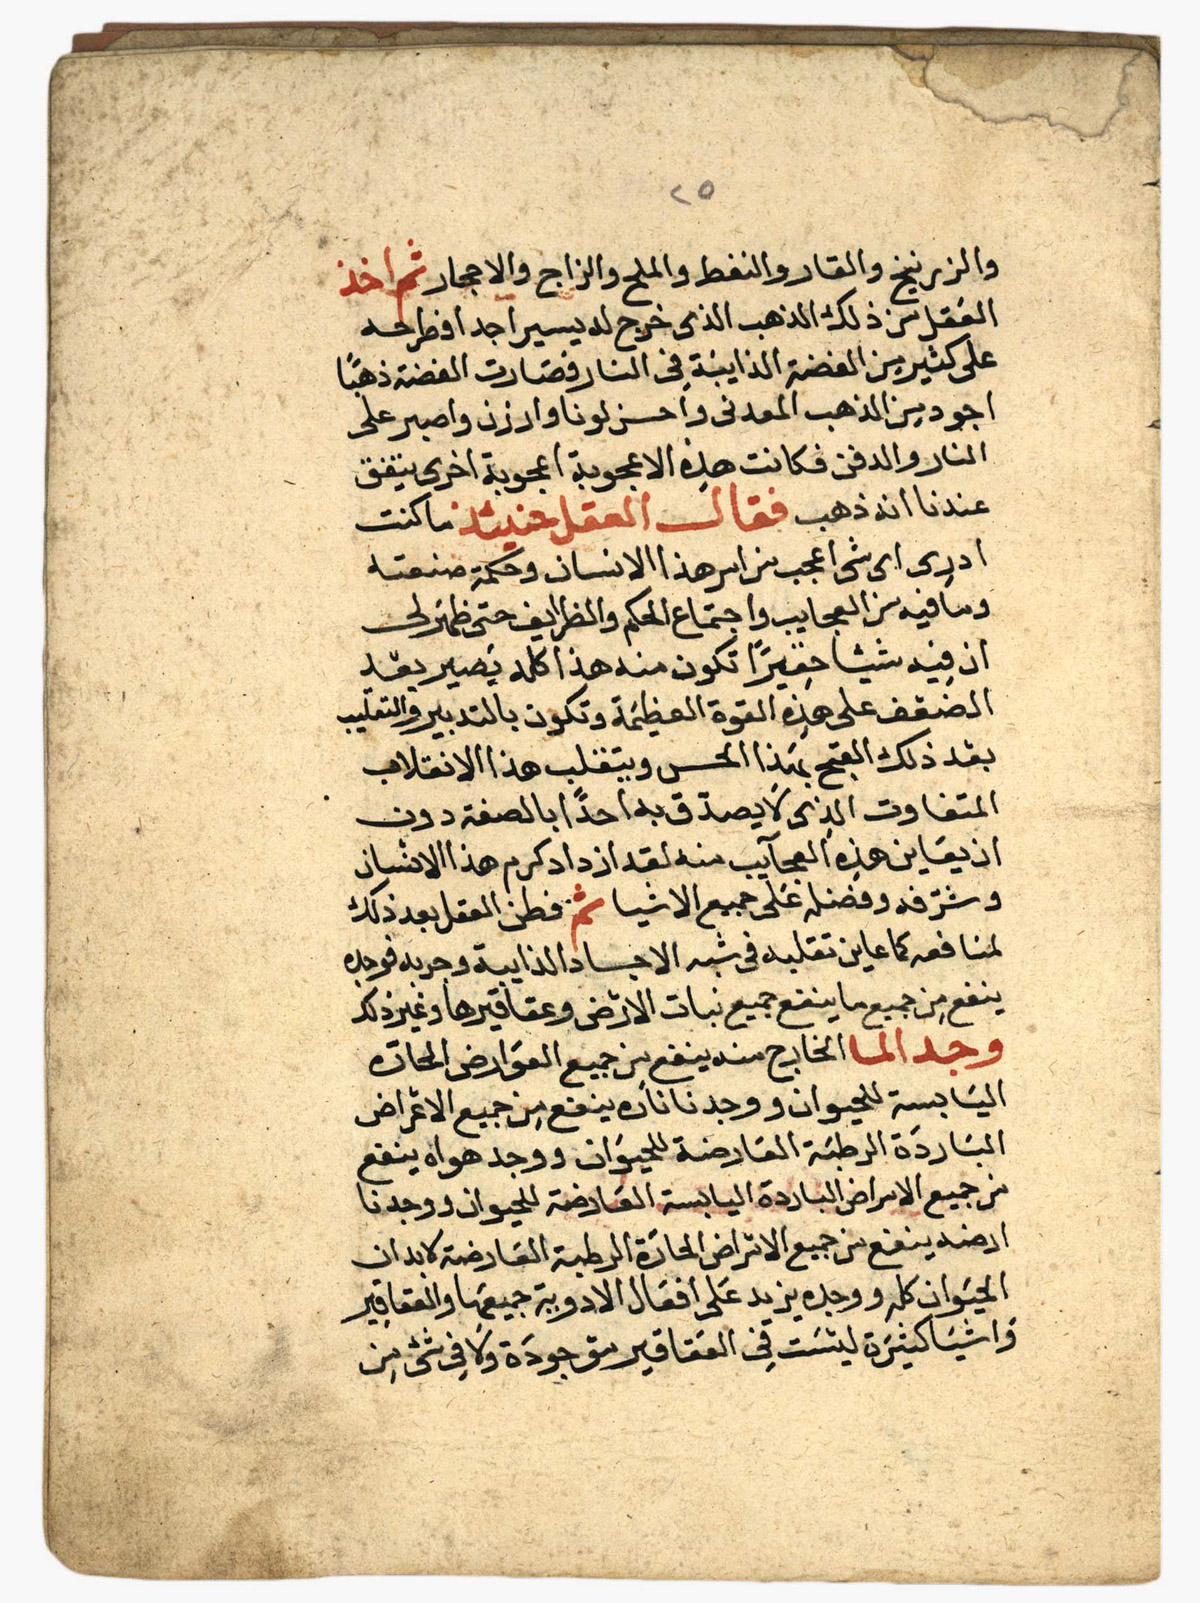 ٢٥
والزرنيخ والقار والنفط والملح والزاج والاحجار ثم اخذ
العقل من ذلك الذهب الذي خرج له يسيرا جدا فطرحه
على كثير من الفضة الذايبة في النار فصارت الفضة ذهبًا
اجود من الذهب المعدني واحسن لونا وارزن واصبر على
النار والدفن فكانت هذه الاعجوبة اعجوبة اخرى يتفق
عندنا انه ذهب فقال العقل حينيئذ ما كنت
ادري اي شي اعجب من امر هذا الانسان وحكمة صنعته
وما فيه من العجايب واجتماع الحكم والظرايف حتى ظهر لي
ان فيه شيئا حقيرًا تكون منه هذا كله يصير بعد
الضعف على هذه القوة العظيمة وتكون بالتدبير والتقليب
بعد ذلك القبح بهذا الحسن ويتقلب هذا الانقلاب
المتفاوت الذي لا يصدق به احدًا بالصفة دون
ان يعاين هذه العجآيب منه لقد ازداد كرم هذا الانسان
وشرفه وفضله على جميع الاشيا ثم فطن العقل بعد ذلك
لمنافعه كما عاين تقلبه في شبه الاجساد الذايبة وجربه فوجده
ينفع من جميع ما ينفع جميع نبات الارض وعقاقيرها وغير ذلك
وجد الما الخارج منه ينفع من جميع العوارض الحارة
اليابسة للحيوان ووجدنا ناره ينفع من جميع الاعراض
الباردة الرطبة العارضة للحيوان ووجد هواه ينفع
من جميع الامراض الباردة اليابسة العارضة للحيوان ووجدنا
ارضه ينفع من جميع الامراض الحارة الرطبة العارضة لابدان
الحيوان كله ووجده يزيد على افعال الادوية جميعها والعقاقير
واشيا كثيرة ليست في العقاقير موجودة ولا في شئ من